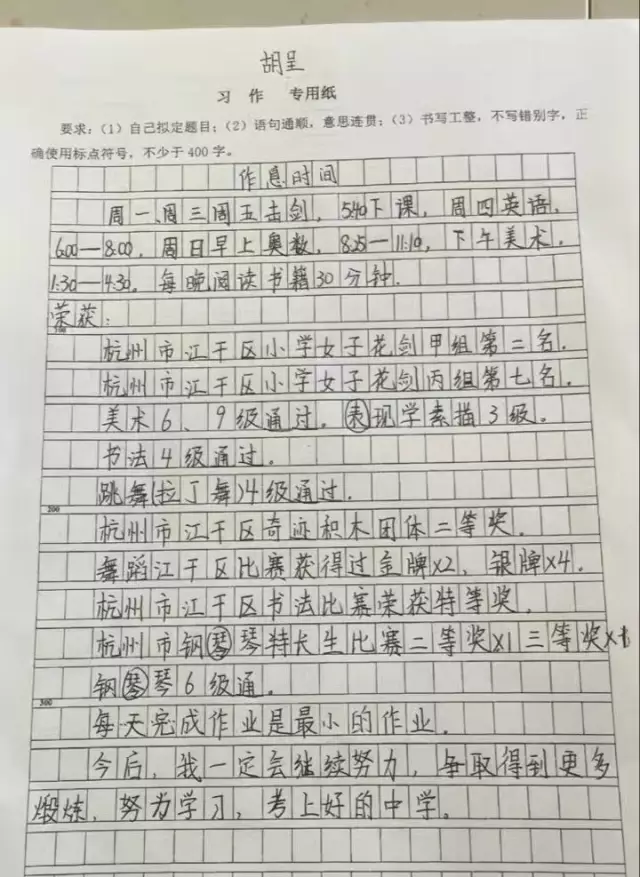 胡呈
习 作 专用纸
要求：（1）自己拟定题目；（2）语句通顺，意思连贯；（3）书写工整，不写错别字，正
确使用标点符号，不少于 400 字。
作息时间
周一周三周五击剑，5:40下课，周四英语，
6:00—8:00，周日早上奥数，8:25—11:10，下午美术，
1:30—4:30。每晚阅读书籍30分钟。
荣获：
100
杭州市江干区小学女子花剑甲组第二名。
杭州市江干区小学女子花剑丙组第七名。
美术6、9级通过。表现学素描3级。
书法4级通过。
跳舞(拉丁舞)4级通过。
200
杭州市江干区奇迹积木团体二等奖。
舞蹈江干区比赛获得过金牌x2，银牌x4。
杭州市江干区书法比赛荣获特等奖。
杭州市钢琴特长生比赛二等奖x1三等奖
钢琴6级通。
300
每天完成作业是最小的作业。
今后，我一定会继续努力，争取得到更多
煅炼，努为学习，考上好的中学。